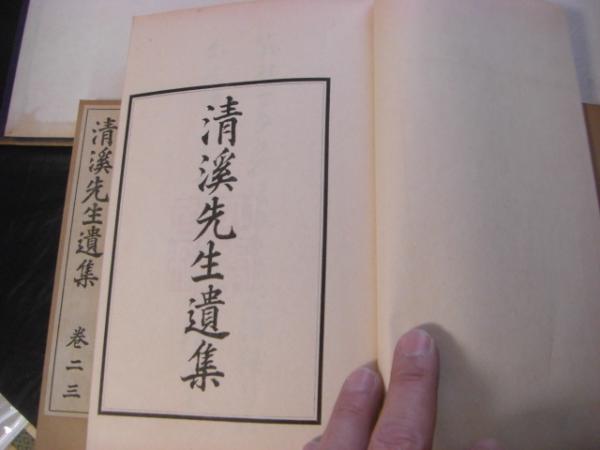 清溪先生遺集
清溪先生遺集
卷二三